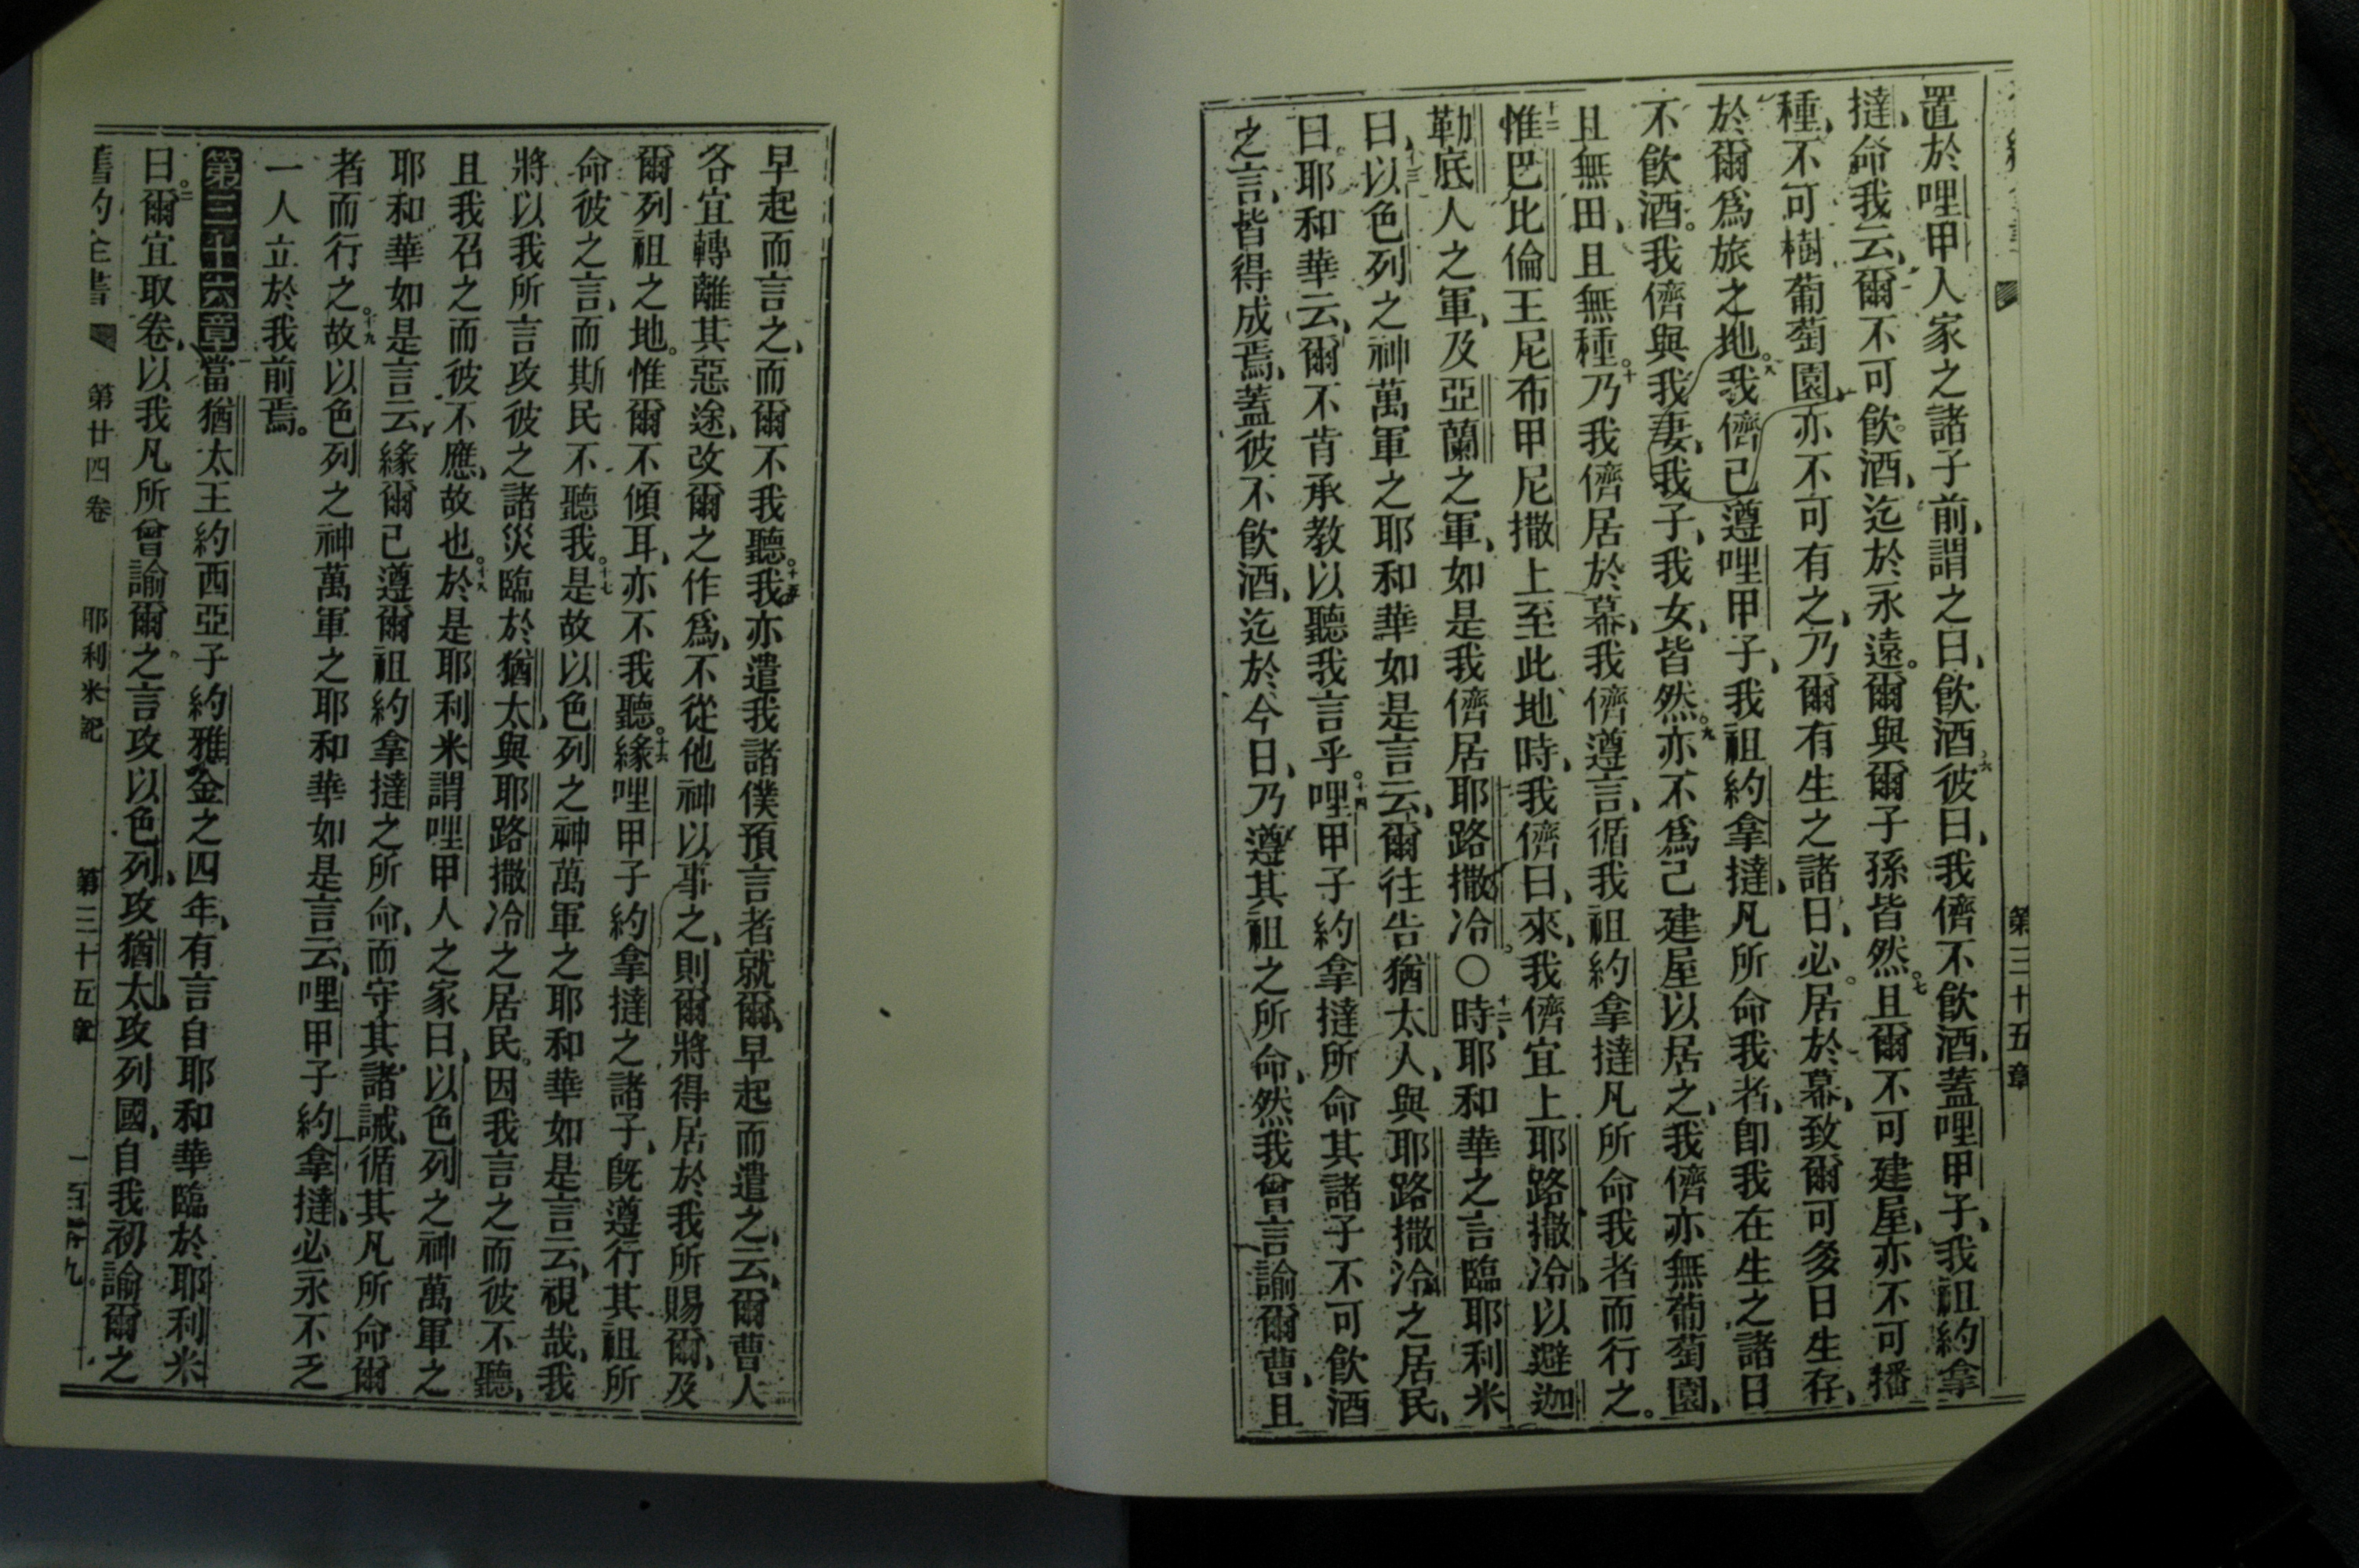 第三十五章
置於哩甲人家之諸子前、謂之曰、飲酒六彼曰、我儕不飲酒、蓋哩甲子、我祖約拿
撻、命我云、爾不可飲酒、迄於永遠。爾與爾子孫皆然。七且爾不可建屋、亦不可播
種、不可樹葡萄園、亦不可有之、乃爾有生之諸日、必居於幕、致爾可多日生存、
於爾爲旅之地。八我儕已遵哩甲子、我祖約拿撻、凡所命我者、卽我在生之諸日
不飲酒。我儕與我妻、我子、我女、皆然。九亦不爲己建屋以居之、我儕亦無葡萄園、
且無田、且無種。十乃我儕居於幕、我儕遵言、循我祖約拿撻凡所命我者而行之。
十一惟巴比倫王尼布甲尼撒上至此地時、我儕曰、來、我儕宜上耶路撒冷、以避迦
勒底人之軍、及亞蘭之軍、如是我儕居耶路撒冷。○十二時、耶和華之言臨耶利米
曰、十三以色列之神萬軍之耶和華如是言云、爾往告猶太人、與耶路撒冷之居民、
曰、耶和華云、爾不肯承教以聽我言乎。十四哩甲子約拿撻所命其諸子不可飲酒
之言、皆得成焉、蓋彼不飲酒、迄於今日、乃遵其祖之所命、然我曾言諭爾曹、且
早起而言之、而爾不我聽。十五我亦遣我諸僕預言者就爾、早起而遣之、云、爾曹人
各宜轉離其惡途、改爾之作爲、不從他神以事之、則爾將得居於我所賜爾、及
爾列祖之地。惟爾不傾耳、亦不我聽。十六緣哩甲子約拿撻之諸子、旣遵行其祖所
命彼之言、而斯民不聽我。十七是故以色列之神萬軍之耶和華如是言云、視哉、我
將以我所言攻彼之諸災臨於猶太、與耶路撒冷之居民。因我言之而彼不聽、
且我召之而彼不應、故也。十八於是耶利米謂哩甲人之家曰、以色列之神萬軍之
耶和華如是言云、緣爾已遵爾祖約拿撻之所命、而守其諸誡、循其凡所命爾
者而行之。十九故以色列之神萬軍之耶和華如是言云、哩甲子約拿撻、必永不乏
一人立於我前焉。
第三十六章當猶太王約西亞子約雅金之四年、有言自耶和華臨於耶利米
曰。二爾宜取卷、以我凡所曾諭爾之言攻以色列、攻猶太、攻列國、自我初諭爾之
舊約全書 第廿四卷 耶利米記 第三十五章 一百零九